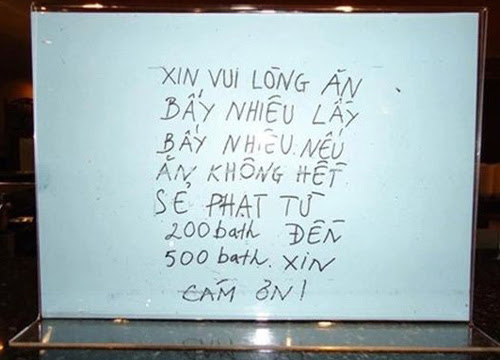 XIN VUI LÒNG ĂN
BẤY NHIÊU LẤY
BẤY NHIÊU NẾU
ĂN KHÔNG HẾT
SẼ PHẠT TỪ
200 bath ĐẾN
500 bath. XIN
CÁM ƠN!